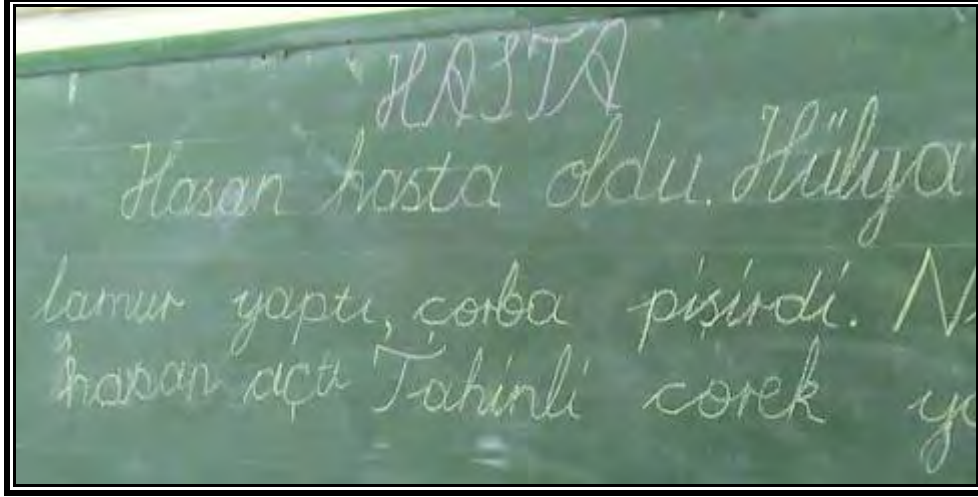 HASTA
Hasan hasta oldu. Hülya
lamur yaptı, çorba pişirdi.
hasan açtı Tahinli corek